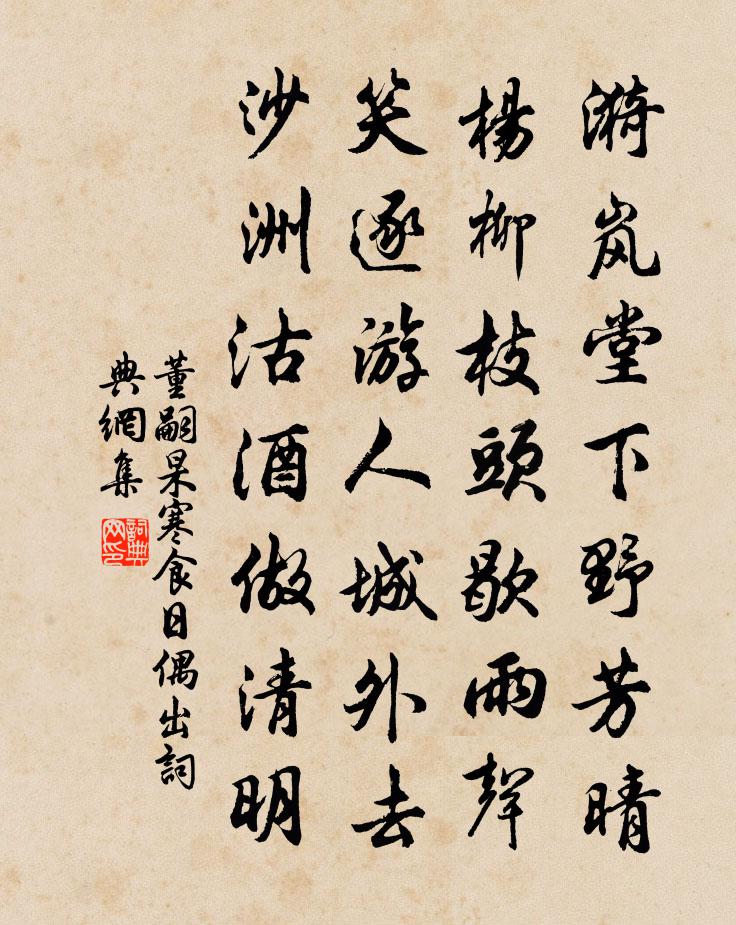 漪岚堂下野芳晴
楊柳枝頭歇雨聲
笑逐游人城外去
沙洲沽酒做清明
董嗣杲寒食日偶出詞
典網集
詞典網印